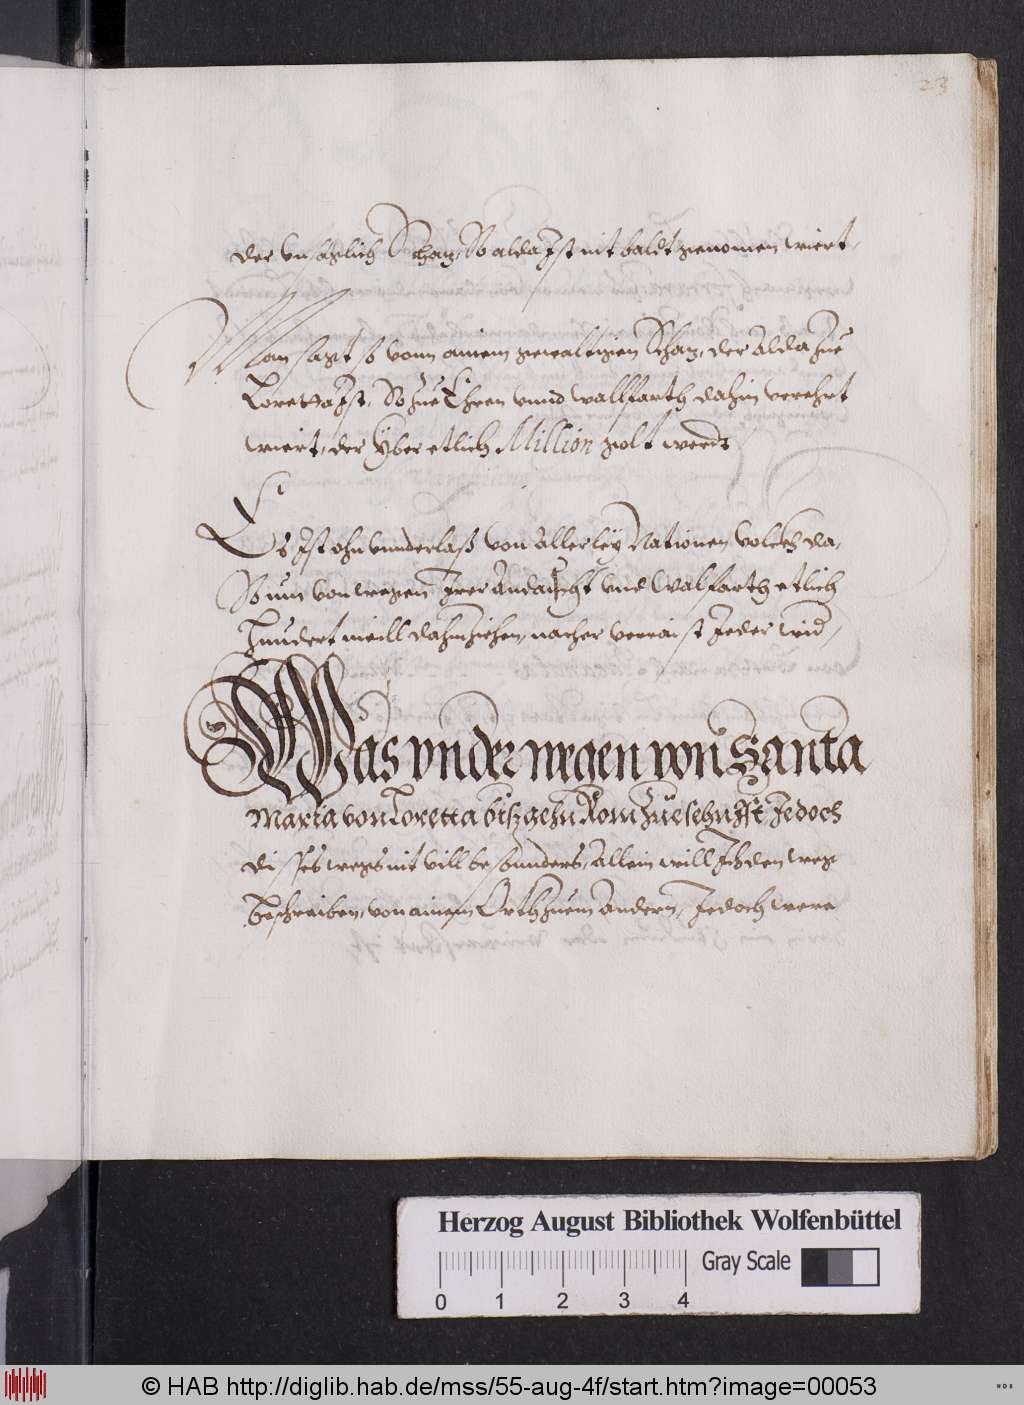 23
der vnsäglich Schaz, So alda Ist nit baldt genomen wiert,
Man sagt so vonn ainem gewaltigen Schaz, der Alda zue
Loretta Ist, So zue Ehren vnnd wallfarth dahin verehrt
wiert, der yber etlich Million golt werdt
Es Ist ohn vnnderlaß von Allerley Nationen volckh da,
So nun von wegen Irer Andacht vnd Walfarth etlich
Hundert meill dahin ziehen, nacher verraist Jeder wid,
Was vnderwegen von Santa
Maria von Loretta bisz gehn Rom zue sehn Ist Jedoch
disses wegs nit vill besonnders, Allein will Ich den weg
beschreiben, von ainem Orth zuem Andern, Jedoch were
Herzog August Bibliothek Wolfenbüttel
Gray Scale
0 1 2 3 4
© HAB http://diglib.hab.de/mss/55-aug-4f/start.htm?image=00053